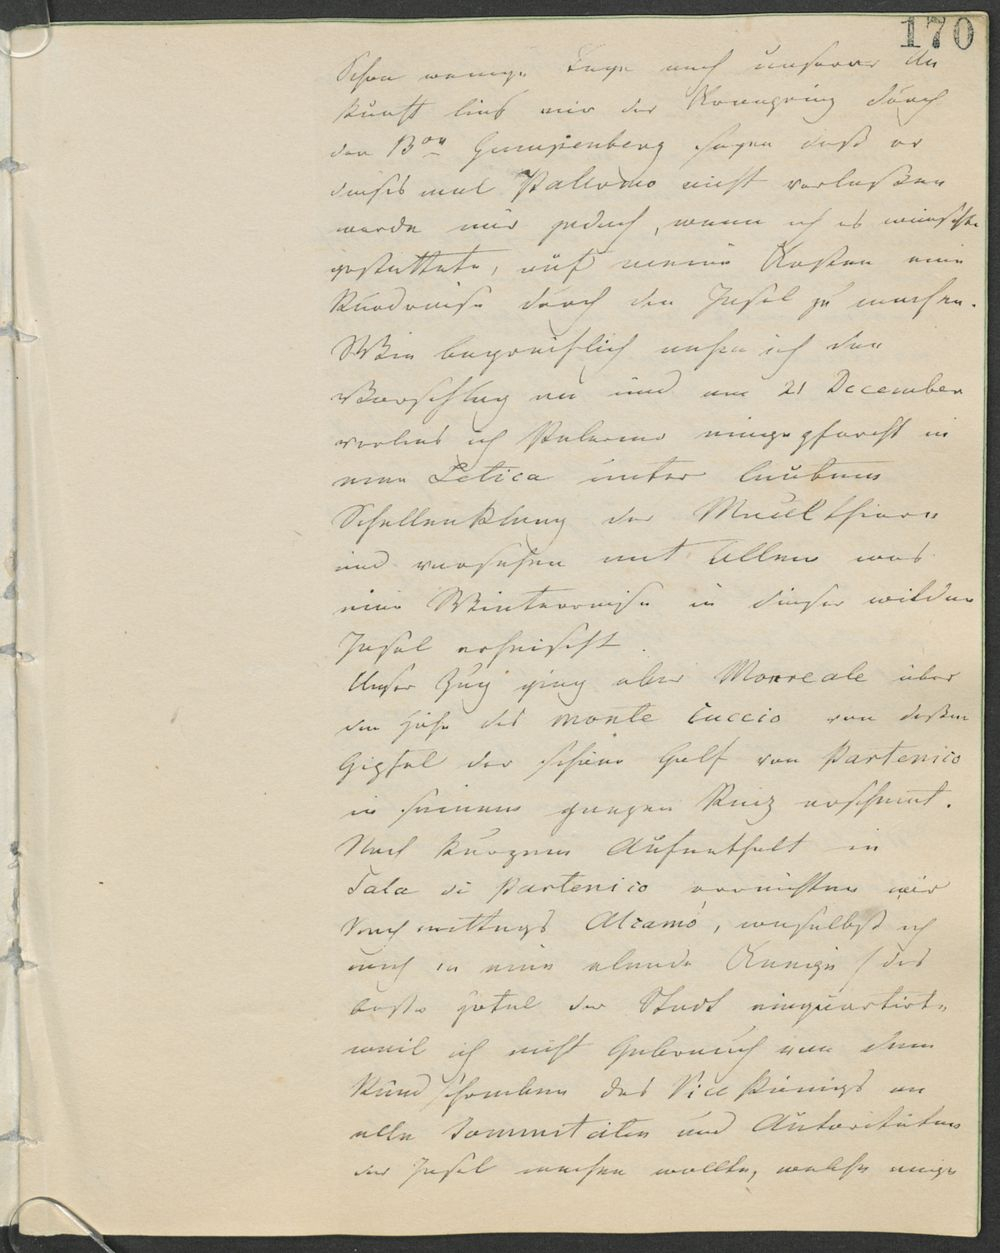 170
Schon wenige Tage nach unserer An
kunft ließ mir der Kronprinz durch
den Bon Gumppenberg sagen daß er
dieses mal Pallermo nicht verlaßen
werde mir jedoch, wenn ich es wünschte
gestattete, auf meine Kosten eine
Rundreise durch die Insel zu machen.
Wie begreiflich nahm ich den
Vorschlag an und am 21 December
verließ ich Palermo eingepfercht in
eine Letica unter lautem
Schellenklang der Maulthiere
und versehen mit allem was
eine Winterreise in dieser wilden
Insel erheischt.
Unser Zug ging über Monreale über
die Höhe des monte Cuccio von deßen
Gipfel der schöne Golf von Partenico
in seinem ganzen Reiz erscheint.
Nach kurzem Aufenthalt in
Sala di Partenico erreichten wir
Nachmittags Alcamó, woselbst ich
mich in eine elende Kneipe / das
beste Hotel der Stadt einquartirte
weil ich nicht Gebrauch von dem
Rundschreiben des Vice Königs an
alle Sommitäten und Autoritäten
der Insel machen wollte, welche einige